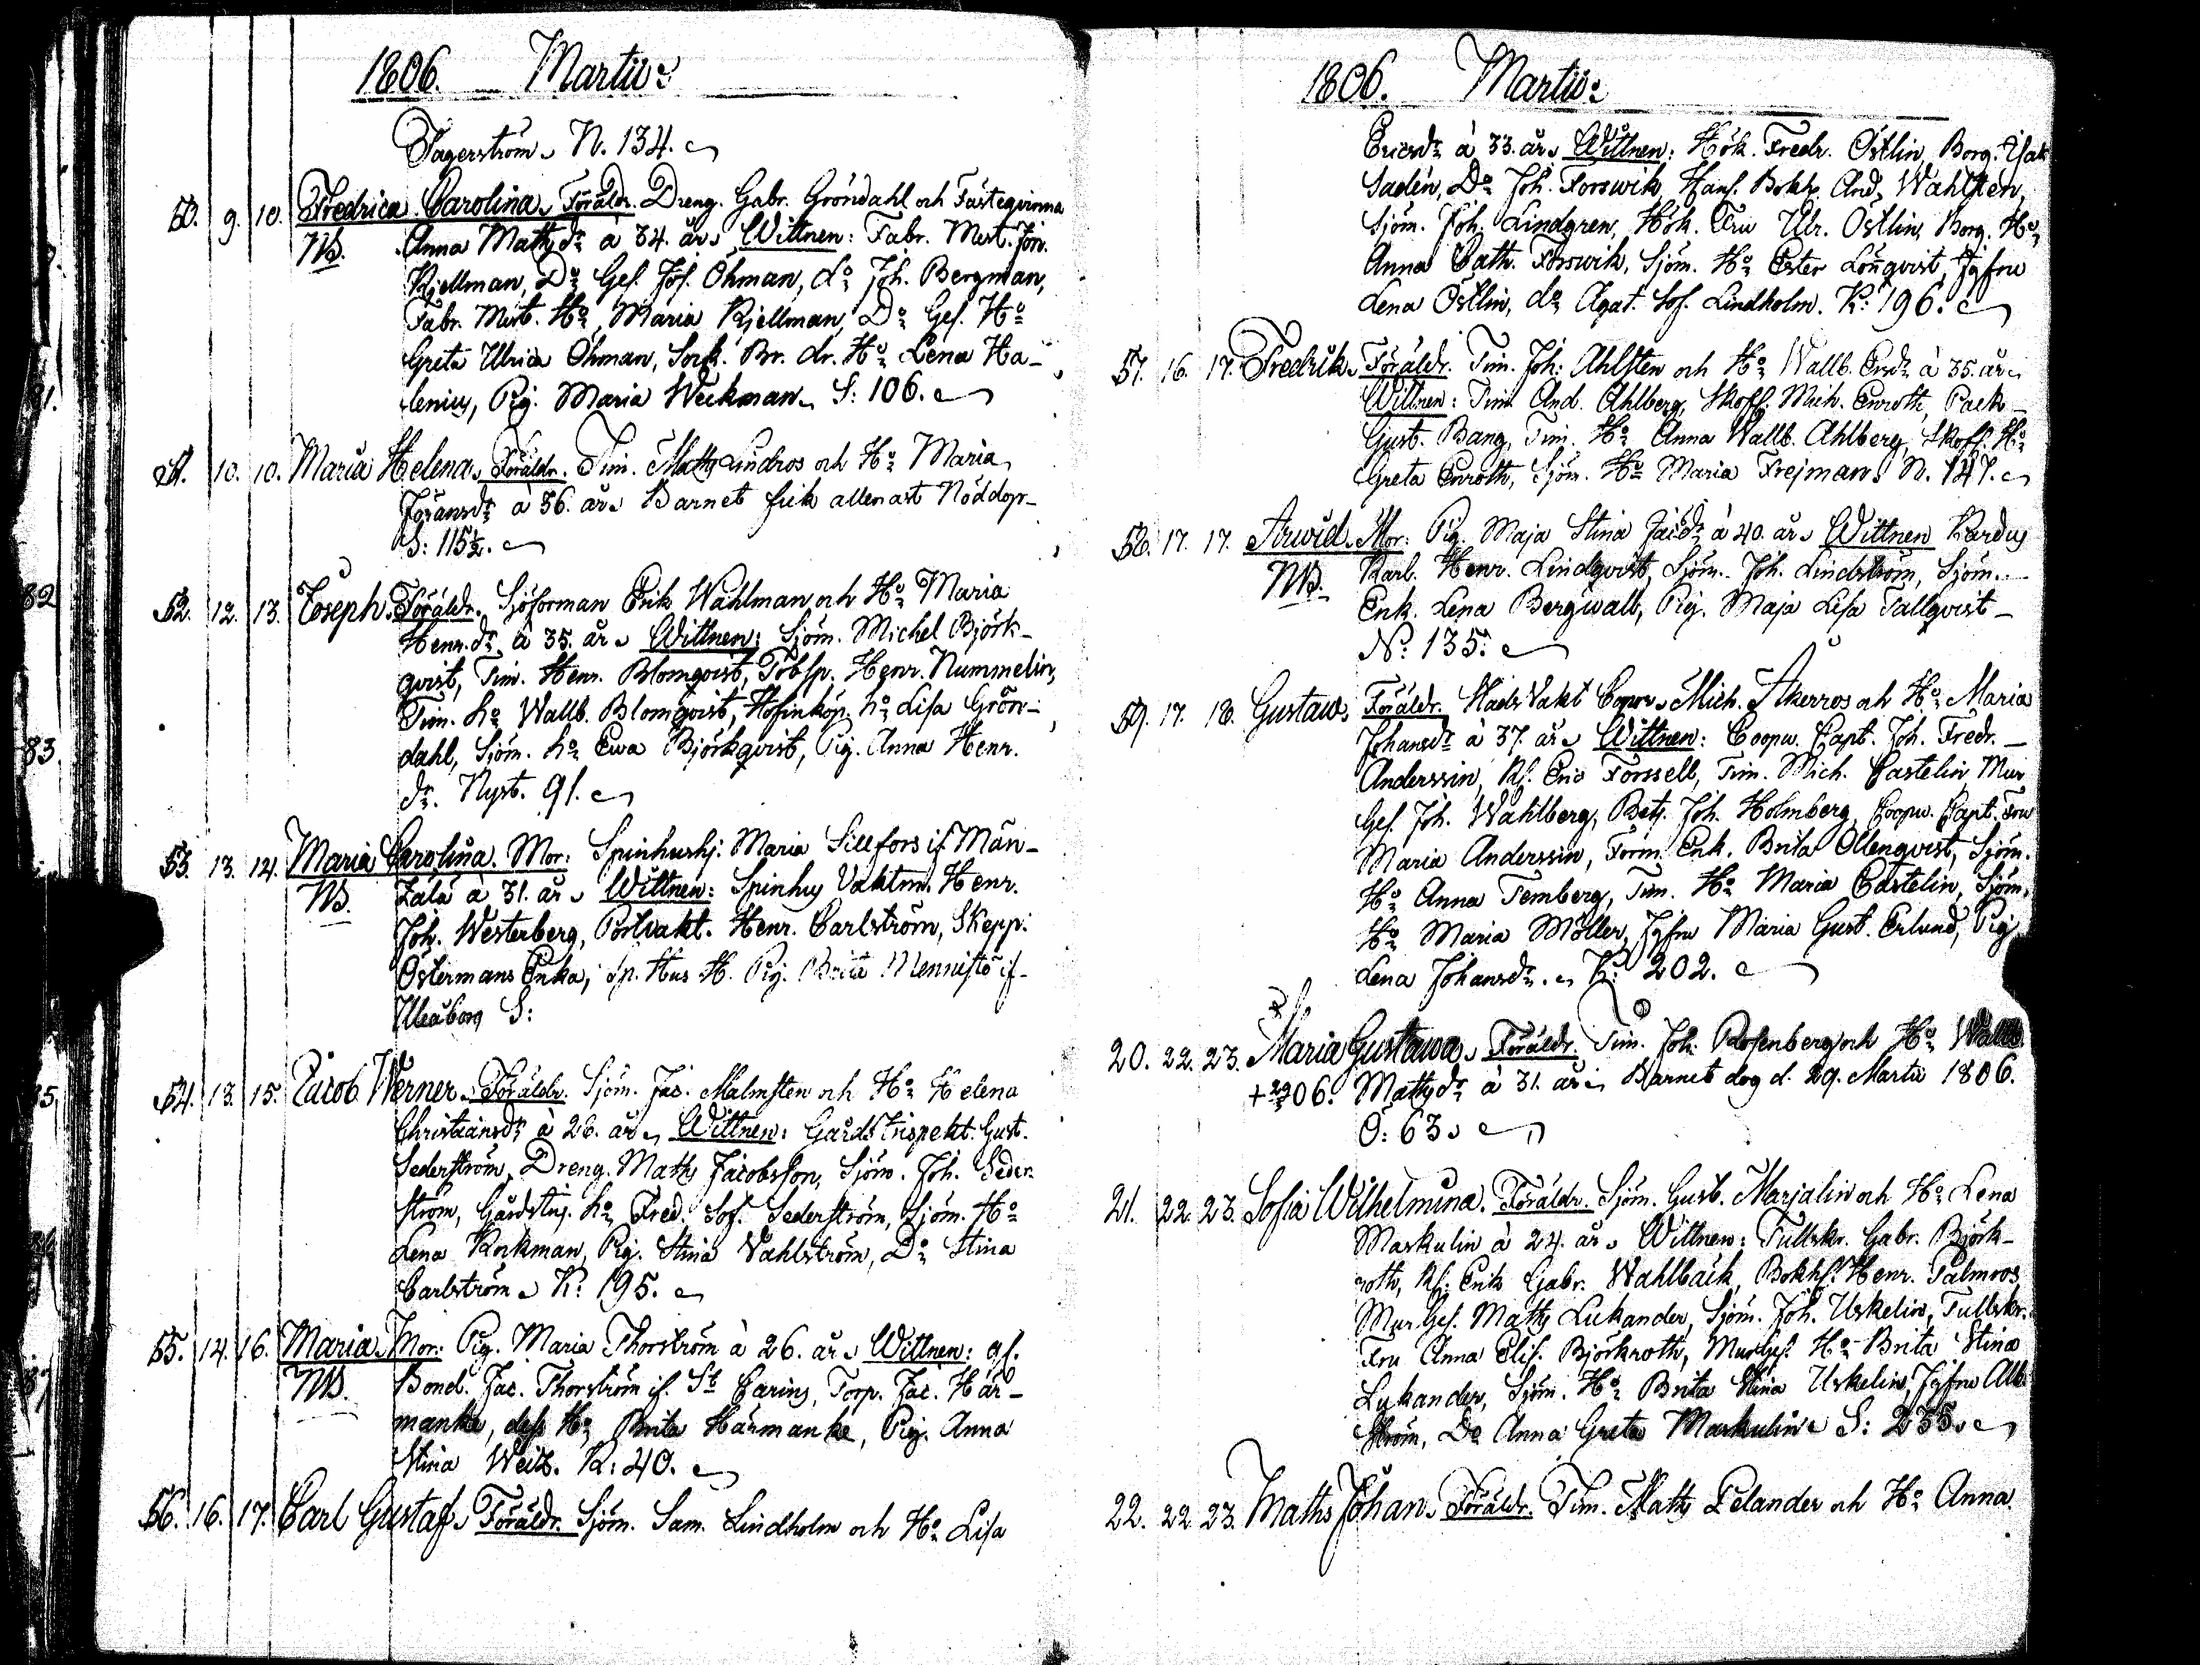 1806. Martii
Fagerström. N. 134.
50. 9. 10. Fredrica Carolina. Föräldr. Dreng. Gabr. Gröndahl och Fästeqvinna
NB. Anna Mattsdr à 34. år. Wittnen: Fabr. Mest. Jon.
Kjellman, Do Ges. Jos. Öhman, do Joh. Bergman,
Fabr. Mest. Ho Maria Kjellman, Do Ges. Ho
Greta Ulrica Öhman, Sock. Br. dr. Ho Lena Ha-
lenius, Pig. Maria Weckman. S: 106.
51. 10. 10. Maria Helena. Föräldr. Tim. Matts Lindros och Ho Maria
Jöransdr à 36. år. Barnet fick allenast Nöddop-
S: 115½.
52. 12. 13. Joseph. Föräldr. Sjöforman Erik Wahlman och Ho Maria
Henr.dr à 35. år. Wittnen: Sjöm. Michel Björk-
qvist, Tim. Henr. Blomqvist, Tobsp. Henr. Nummelin,
Tim. ho Wallb. Blomqvist, ho Lisa Grön-
dahl, Sjöm. ho Ewa Björkqvist, Pig. Anna Henr.
dr. Nyst. 91.
53. 13. 14. Maria Carolina. Mor: Spinhushj. Maria Sillfors if. Män-
NB. Zälä à 31. år. Wittnen: Spinhus Vaktm. Henr.
Joh. Westerberg, Portvakt. Henr. Carlström, Skepp.
Östermans Enka, Sp. Hus H. Pig. Brita Mennistö if
Uleåborg S:
54. 13. 15. Jacob Werner. Föräldr. Sjöm. Jac. Malmsten och Ho Helena
Christiansdr à 26. år. Wittnen: Gårds Inspekt. Gust.
Sederström, Dreng. Matts Jacobsson, Sjöm. Joh. Seder-
ström, Gårdsinsp. ho Fred. Sof. Sederström, Sjöm. Ho
Lena Rockman, Pig. Stina Wahlström, Do Stina
Carlström. K: 195.
55. 14. 16. Maria. Mor: Pig. Maria Thorström à 26. år. Wittnen: gf.
NB. Bond. Jac. Thorström if. St Carins, Torp. Jac. Här-
manke, dess Ho Brita Härmanke, Pig. Anna
Stina Weitz. K: 40.
56. 16. 17. Carl Gustaf. Föräldr. Sjöm. Sam. Lindholm och Ho Lisa
1806. Martii
Ericsdr à 33. år. Wittnen: Hök. Fredr. Östlin, Borg. Isak
Sadén, Do Joh. Forswik, Hans. Bokh. And. Wahlsten,
Sjöm. Joh. Lindgren, Hök. Fru Ulr. Östlin, Borg. Ho
Anna Cath. Forswik, Sjöm. Ho Ester Lönqvist, Jgfru
Lena Östlin, do Agat. Sof. Lindholm. K: 196.
57. 16. 17. Fredrik. Föräldr. Tim. Joh: Ahlsten och Ho Wallb. Ersdr à 35. år.
Wittnen: Tim. And. Ahlberg, Skoff. Mich. Enroth, Pack-
Gust. Bang, Tim. Ho Anna Wallb. Ahlberg, Skoff. Ho
Greta Enroth, Sjöm. Ho Maria Frejman. N. 147.
58. 17. 17. Arwid. Mor: Pig. Maja Stina Jacdr à 40. år. Wittnen Kardus
NB. Karl. Henr. Lindqvist, Sjöm. Joh. Lindström, Sjöm.
Enk. Lena Bergwall, Pig. Maja Lisa Tallqvist-
No: 135.
59. 17. 18. Gustaw. Föräldr. Stads Vakt Mich. Åkerros och Ho Maria
Johansdr à 37. år. Wittnen: Coopv. Capt. Joh. Fredr.
Anderssin, Kf. Eric Forssell, Tim. Mich. Castelin, Mur
Ges. Joh. Wahlberg, Betj. Joh. Holmberg, Coopv. Capt. Fru
Maria Anderssin, Form. Enk. Brita Ollenqvist, Sjöm.
Ho Anna Temberg, Tim. Ho Maria Castelin, Sjöm.
Ho Maria Möller, Jgfru Maria Gust. Erlund, Pig
Lena Johansdr. K: 202.
20. 22. 23. Maria Gustawa. Föräldr. Tim. Joh. Rosenberg och Ho Wallb.
+ 29/3 06. Mattsdr à 31. år. Barnet dog d. 29. Martii 1806.
Ö: 63.
21. 22. 23. Sofia Wilhelmina. Föräldr. Sjöm. Gust. Marjalin och Ho Lena
Maskulin à 24. år. Wittnen: Tullskr. Gabr. Björk-
roth, Kf. Erik Gabr. Wahlbäck, Bokh. Henr. Palmroos,
Mur Ges. Matts Lukander, Sjöm. Joh. Uskelin, Tullskr.
Fru Anna Elis. Björkroth, MurGes. Ho Brita Stina
Lukander, Sjöm. Ho Brita Stina Uskelin, Jgfru Alb.
Ström, Do Anna Greta Maskulin. S: 235.
22. 22. 23. Maths Johan. Föräldr. Tim. Matts Pelander och Ho Anna